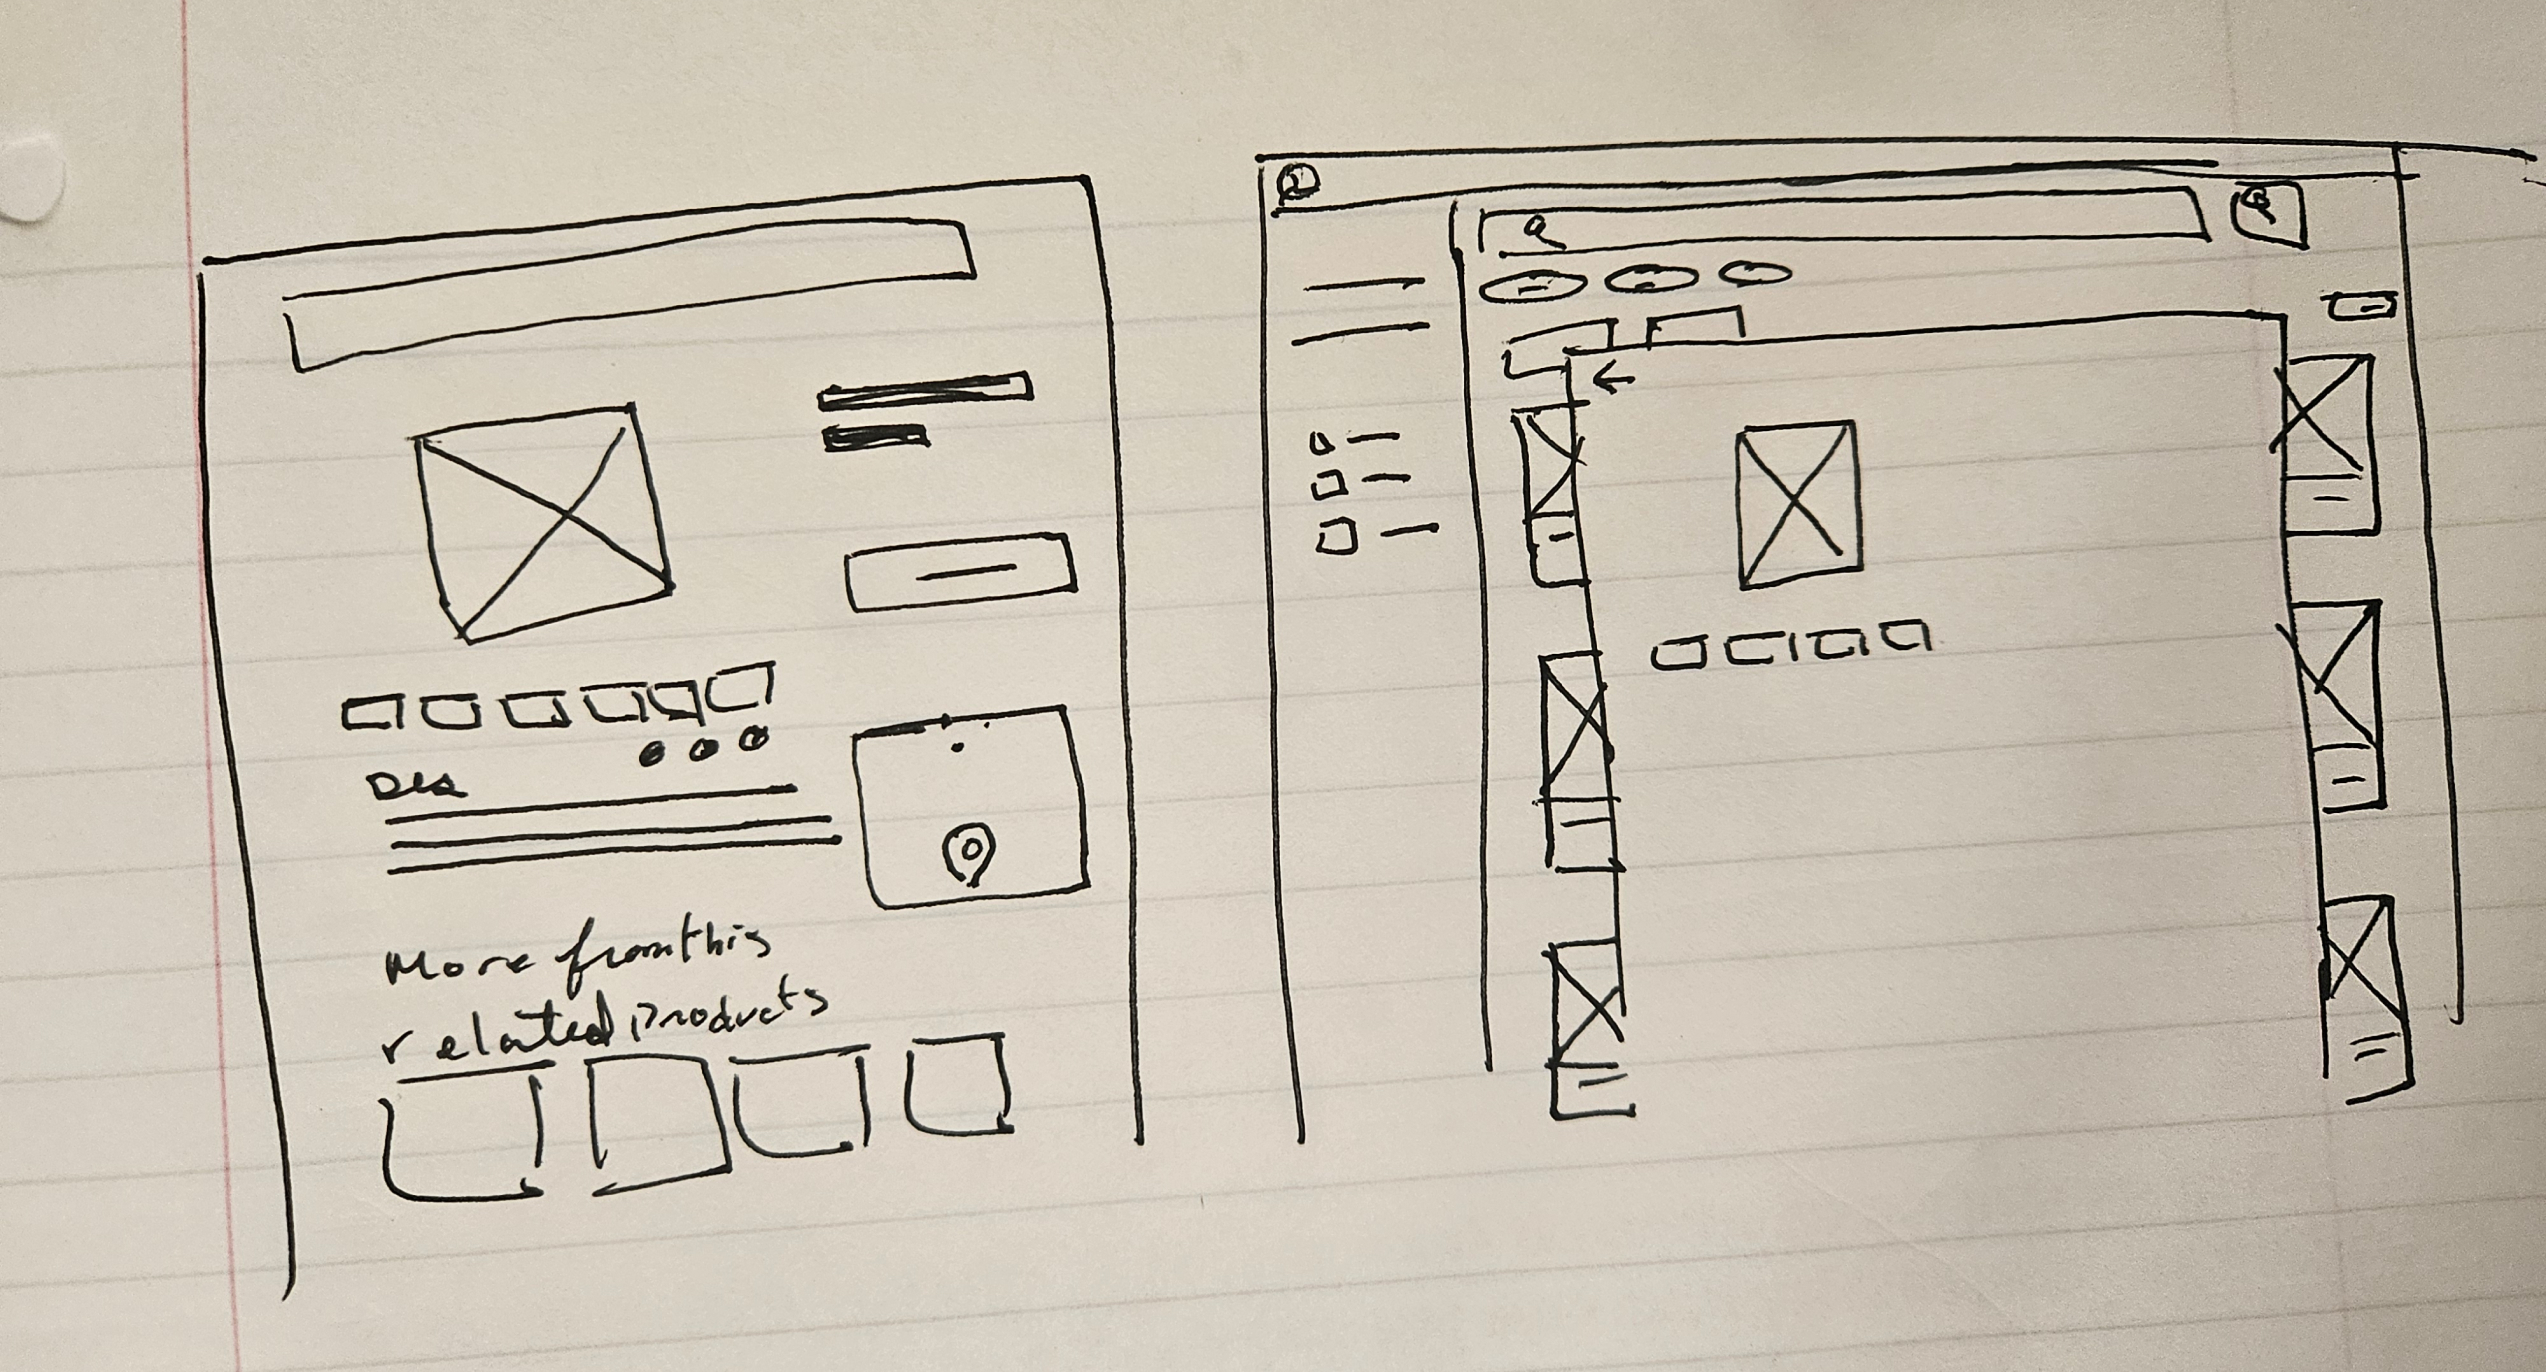 Des
More from this
related Products